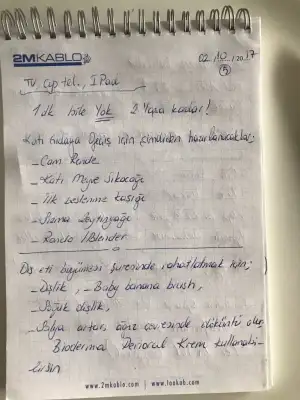 2MKABLO
02.10.2017
5
TV, Cep tel., IPad
1 dk bile Yok 2 Yaşa kadar!
Katı gıdaya geçiş için şimdiden hazırlanacaklar:
- Cam Rende
- Katı Meyve Sıkacağı
- İlk beslenme kaşığı
- Sızma Zeytinyağı
- Rondo / Blender
Diş eti büyümesi süresinde rahatlatmak için;
- Dişlik, - Baby banana brush,
- Büyük dişlik,
- Salya artar, ağız çevresinde döküntü olur
Bioderma Perioral Krem kullanabi-
lirsin
www.2mkablo.com | www.lookab.com